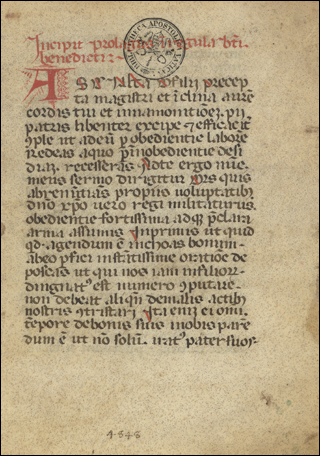 Incipit prologus regula bti
benedicti:
AUSculta o fili precep
ta magistri et iclina aurē
cordis tui et inamonitiōez pii
patris libenter excipe & efficacit
cōple ut ad eū p obedientie laborē
redeas a quo p inobedientie desi
diaz recesseras Ad te ergo nūc
meus sermo dirigitur Qis quis
abrenūtias propriis voluptatibꝫ
dno xpo vero regi militaturus
obedientie fortissima adqꝫ p̄clara
arma assumis Inprimis ut quid
qd agendum inchoas boni
ab eo pfici instātissime oratiōe de
poscas ut qui nos iam in filiorū
dingnatꝰ est numero cōputare
non debeat aliqn̄ de malis actibꝫ
nostris cōtristari Ita enīz ei omi
tēpore de bonis suis in nobis parē
dum ē ut nō solū iratꝰ pater suos
4848